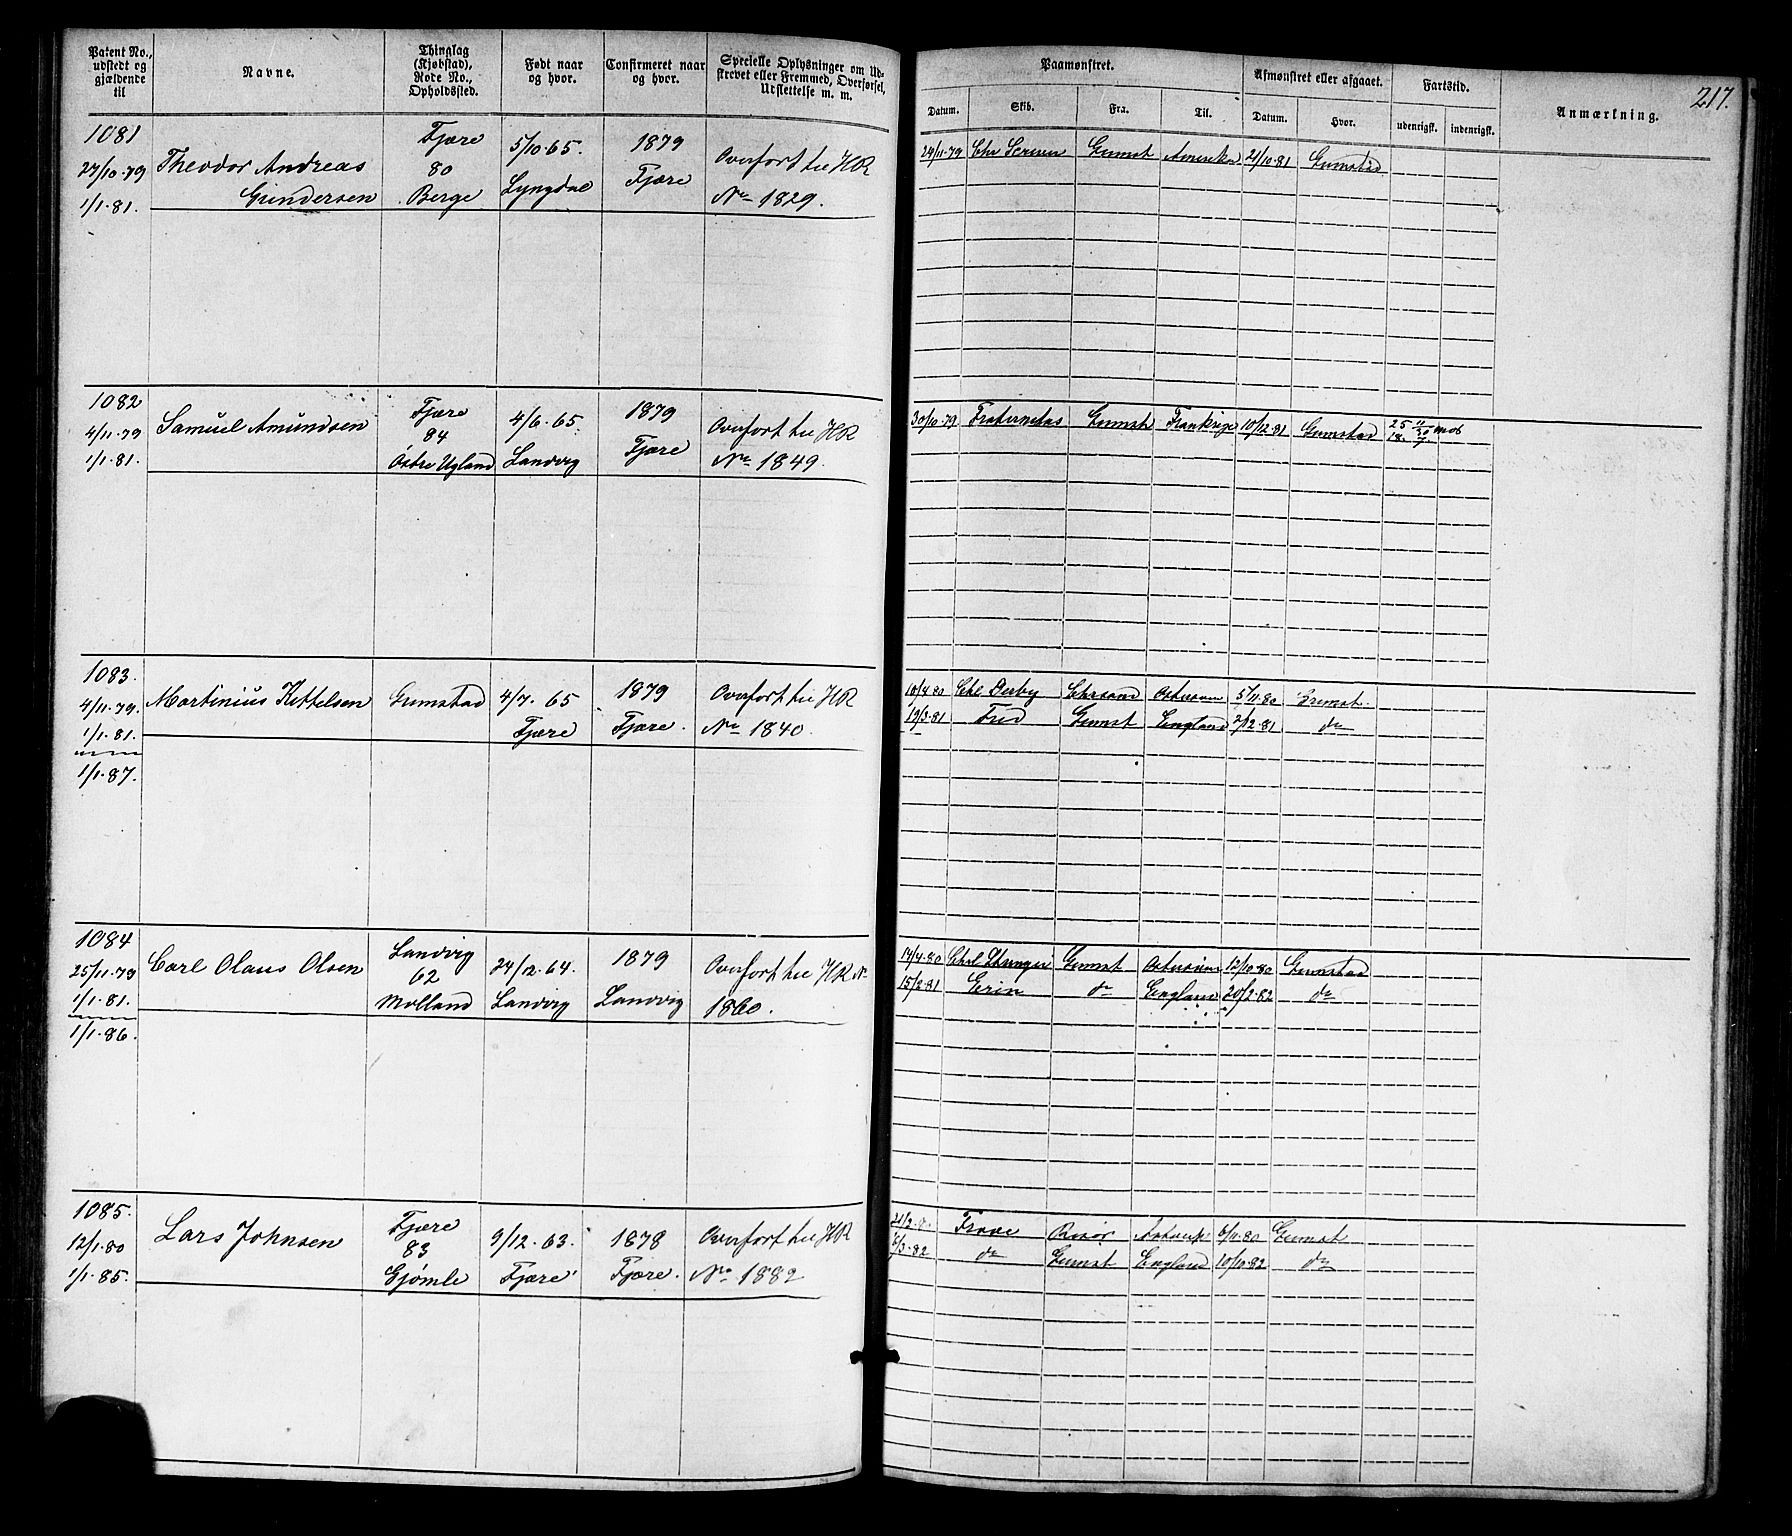 217.
Patent No., udstedt og gjældende til
Navne.
Thinglag (Kjøbstad), Rode No., Opholdssted.
Født naar og hvor.
Confirmeret naar og hvor.
Specielle Oplysninger om Udskrevet eller Fremmed, Overførsel, Udslettelse m. m.
Paamønstret.
Datum.
Skib.
Fra.
Til.
Afmønstret eller afgaaet.
Datum.
Hvor.
Fartstid.
udenrigsk.
indenrigsk.
Anmærkning.
1081
27/10.79
1/1.81.
Theodor Andreas
Gundersen
Fjære
80
Berge
5/10.65.
Lyngdal
1879
Fjære
Overført til HR
No 1829.
24/11.79 Grimst Amerika 21/10.81 Grimstad
1082
4/11.79
1/1.81.
Samuel Amundsen
Fjære
84
Østre Ugland
4/6.65
Landvig
1879
Fjære
Overført til HR
No 1849.
30/10.79 Fraternitas Grimst Frankrige 10/12.81 Grimstad
1083.
4/11.79.
1/1.81.
1/1.87.
Martinius Kittelsen
Grimstad
4/7.65
Fjære
1879
Fjære.
Overført til HR
No 1840.
10/4.80 Chl Derby Chrsand Østersøen 5/11.80 Grimst
19/3.81 Fred Grimst England 2/12.81 do
1084
25/11.79
1/1.81.
1/1.86.
Carl Olaus Olsen
Landvig
62
Molland
24/12.64.
Landvig
1879
Landvig
Overført til HR No
1860.
14/4.80 Grimst Østersøen 12/10.80 Grimstad
15/2.81 Erin do England 20/2.82 do
1085.
12/1.80
1/1.85.
Lars Johnsen
Fjære
83
Gjømle
9/12.63.
Fjære
1878
Fjære.
Overført til HR
No 1882
Risør Antwerp 6/11.80 Grimst
do Grimst England 10/10.82 do